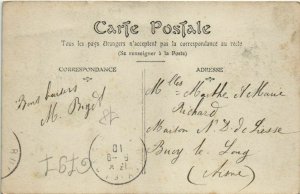 Carte Postale
Tous les pays étrangers n'acceptent pas la correspondance au recto
(Se renseigner à la Poste)
CORRESPONDANCE
ADRESSE
Bons baisers
M. Bigot
Mlles Marthe & Marie
Richard
Maison N. D. de Liesse
Bucy le Long
(Aisne)